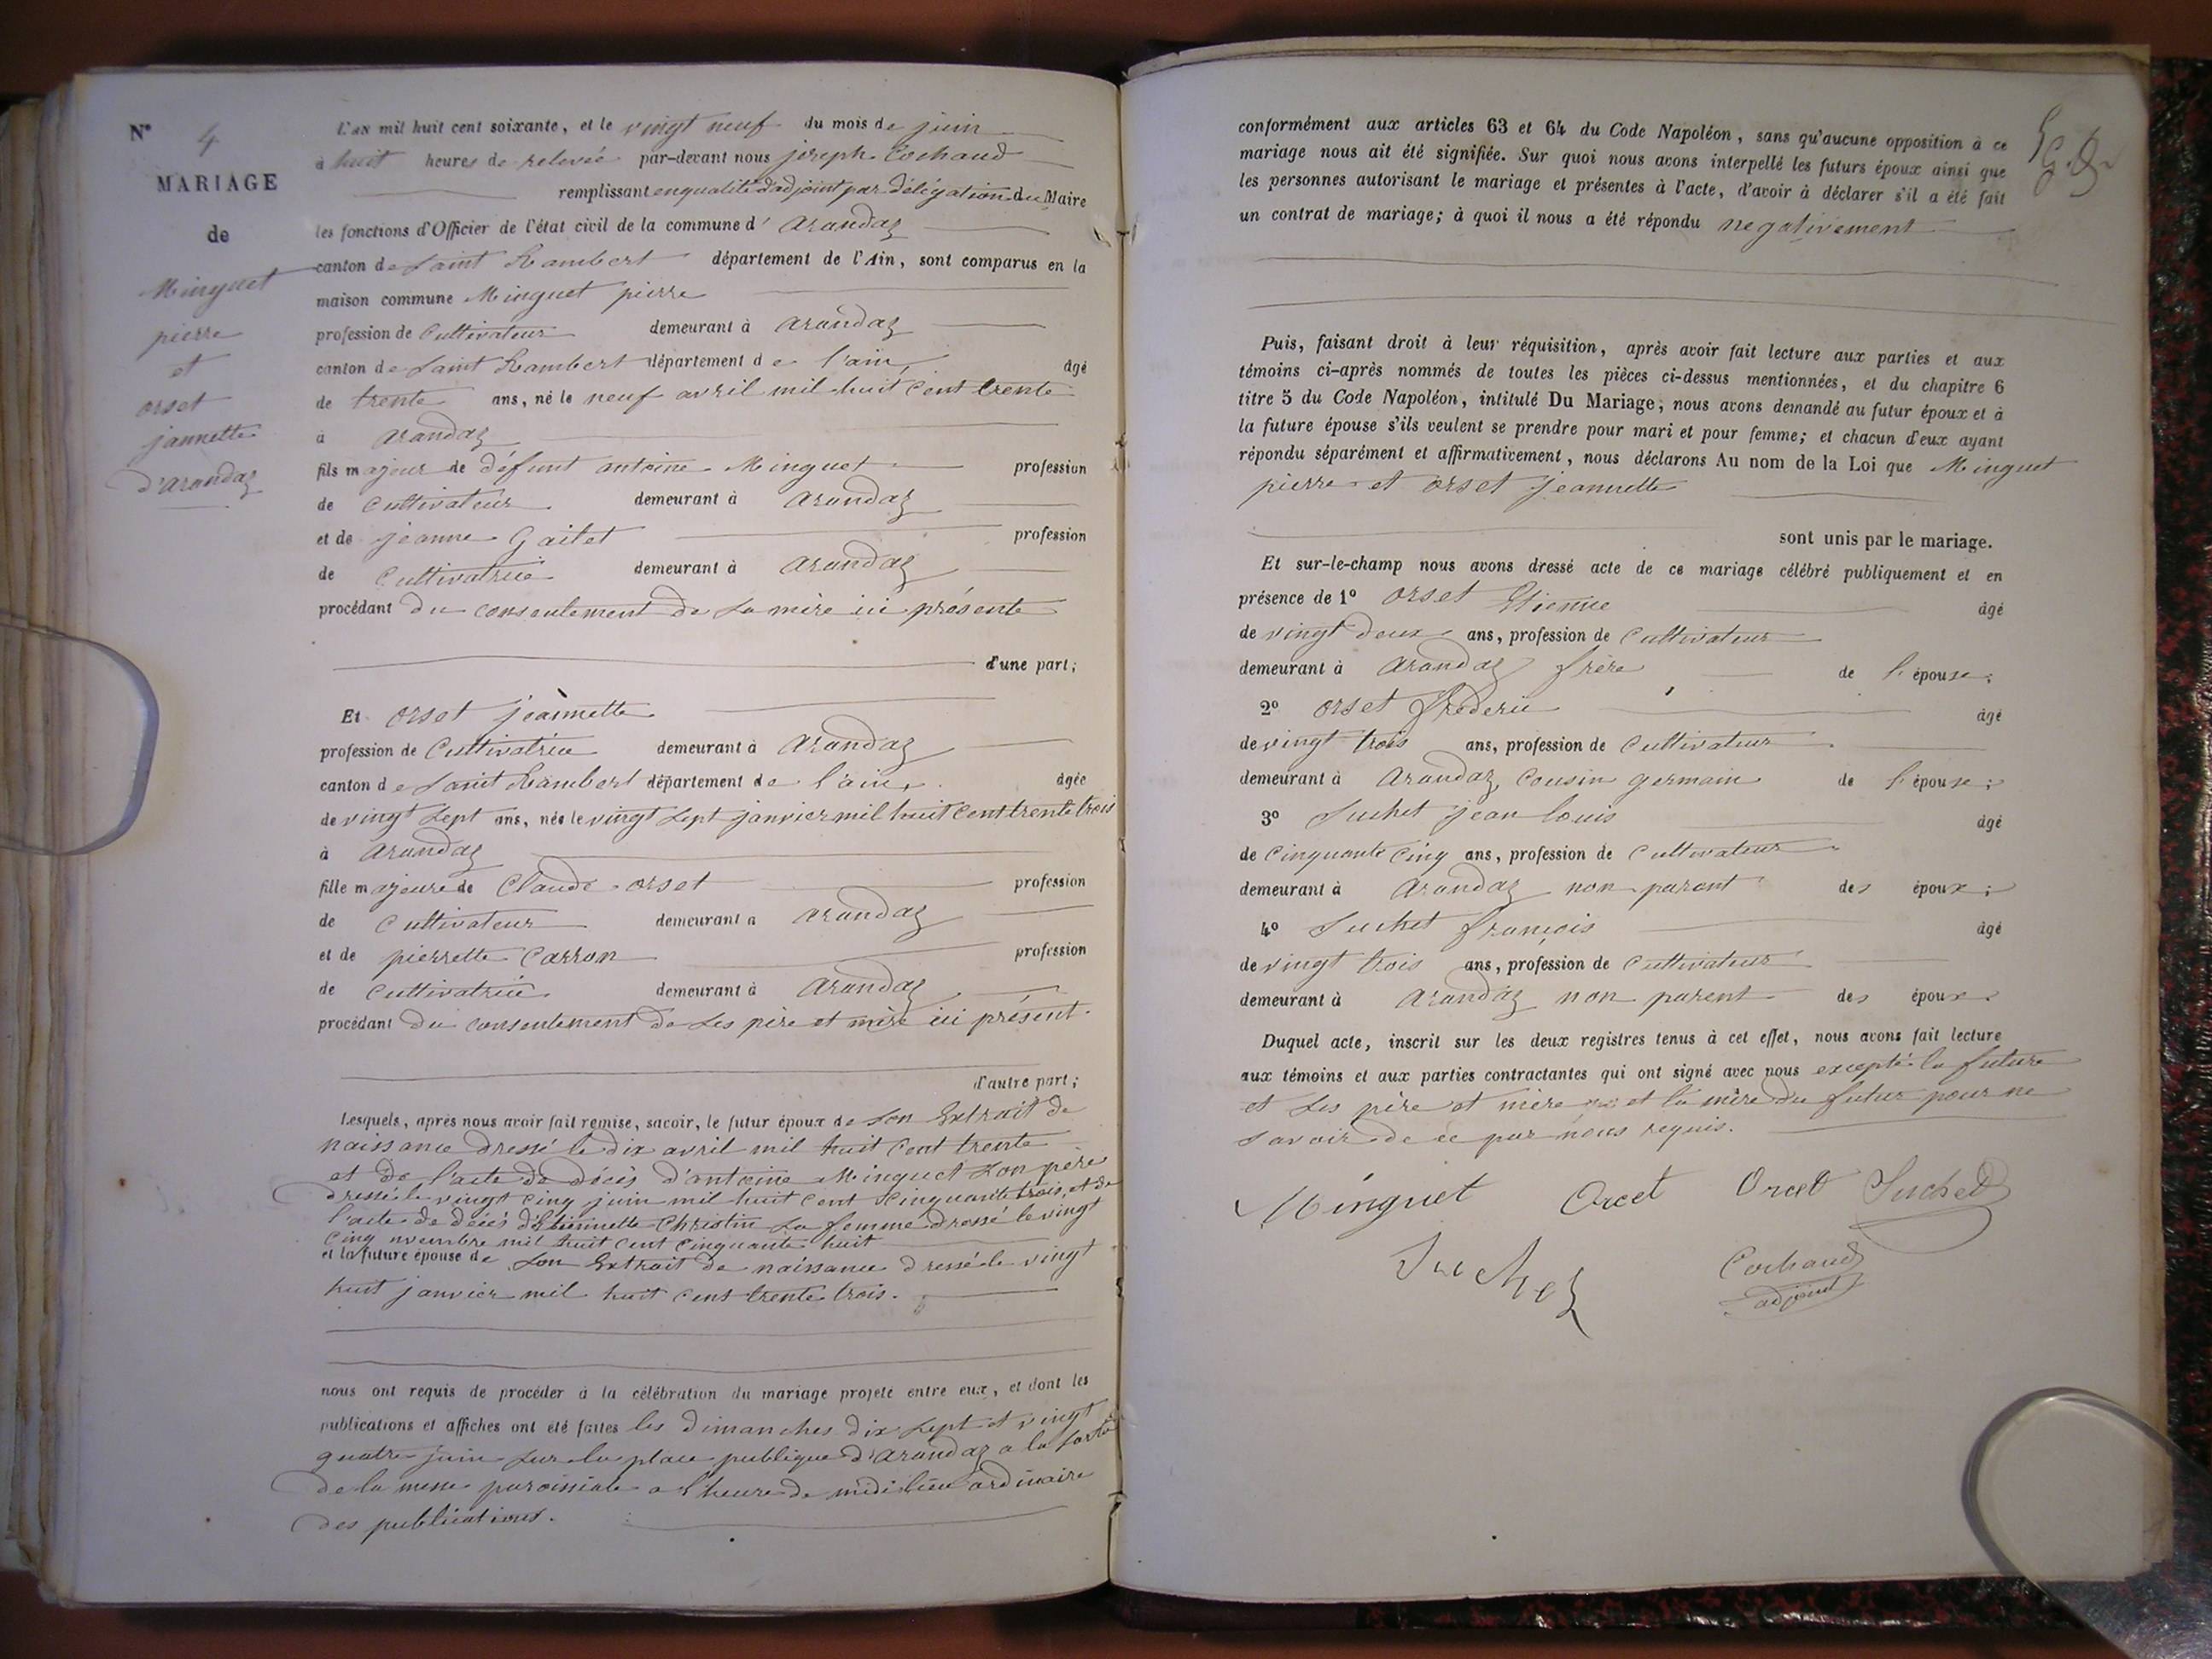 N° 4
MARIAGE
de
Minguet
pierre
et
orset
jannette
d'arandaz
L'an mil huit cent soixante, et le vingt neuf du mois de juin
à huit heures de relevée par-devant nous joseph Cochaud
remplissant en qualité d'adjoint par délégation du Maire
les fonctions d'Officier de l'état civil de la commune d' arandaz
canton de Saint Rambert département de l'Ain, sont comparus en la
maison commune Minguet pierre
profession de Cultivateur demeurant à arandaz
canton de Saint Rambert département de l'ain, âgé
de trente ans, né le neuf avril mil huit cent trente
à arandaz
fils majeur de défunt antoine Minguet profession
de cultivateur demeurant à arandaz
et de jeanne Gaitet profession
de Cultivatrice demeurant à arandaz
procédant du consentement de sa mère ici présente
d'une part;
Et orset jeannette
profession de Cultivatrice demeurant à arandaz
canton de Saint Rambert département de l'ain, âgée
de vingt sept ans, née le vingt sept janvier mil huit cent trente trois
à arandaz
fille majeure de Claude orset profession
de cultivateur demeurant à arandaz
et de pierrette Carron profession
de cultivatrice demeurant à arandaz
procédant du consentement de ses père et mère ici présent.
d'autre part;
Lesquels, après nous avoir fait remise, savoir, le futur époux de son Extrait de
naissance dressé le dix avril mil huit cent trente
et de l'acte de décès d'antoine Minguet son père
dressé le vingt cinq juin mil huit cent cinquante trois, et de
l'acte de décès d'Etiennette Christin sa femme dressé le vingt
cinq novembre mil huit cent cinquante huit
et la future épouse de son Extrait de naissance dressé le vingt
huit janvier mil huit cent trente trois.
nous ont requis de procéder à la célébration du mariage projeté entre eux, et dont les
publications et affiches ont été faites les dimanches dix sept et vingt
quatre juin sur la place publique d'arandaz a la sortie
de la messe paroissiale a l'heure de midi lieu ordinaire
des publications.
conformément aux articles 63 et 64 du Code Napoléon, sans qu'aucune opposition à ce
mariage nous ait été signifiée. Sur quoi nous avons interpellé les futurs époux ainsi que
les personnes autorisant le mariage et présentes à l'acte, d'avoir à déclarer s'il a été fait
un contrat de mariage; à quoi il nous a été répondu negativement
Puis, faisant droit à leur réquisition, après avoir fait lecture aux parties et aux
témoins ci-après nommés de toutes les pièces ci-dessus mentionnées, et du chapitre 6
titre 5 du Code Napoléon, intitulé Du Mariage; nous avons demandé au futur époux et à
la future épouse s'ils veulent se prendre pour mari et pour femme; et chacun d'eux ayant
répondu séparément et affirmativement, nous déclarons Au nom de la Loi que Minguet
pierre et orset jeannette
sont unis par le mariage.
Et sur-le-champ nous avons dressé acte de ce mariage célébré publiquement et en
présence de 1° orset Etienne âgé
de vingt deux ans, profession de Cultivateur
demeurant à arandaz frère de l'épouse;
2° orset frederic âgé
de vingt trois ans, profession de cultivateur
demeurant à arandaz cousin germain de l'épouse;
3° Suchet jean louis âgé
de cinquante cinq ans, profession de cultivateur
demeurant à arandaz non parent des époux;
4° Suchet françois âgé
de vingt trois ans, profession de cultivateur
demeurant à arandaz non parent des époux
Duquel acte, inscrit sur les deux registres tenus à cet effet, nous avons fait lecture
aux témoins et aux parties contractantes qui ont signé avec nous excepté la future
et ses père et mère et la mère du futur pour ne
savoir de ce par nous requis.
Minguet Orcet Orcet Suchet
Suchet Cochaud
adjoint